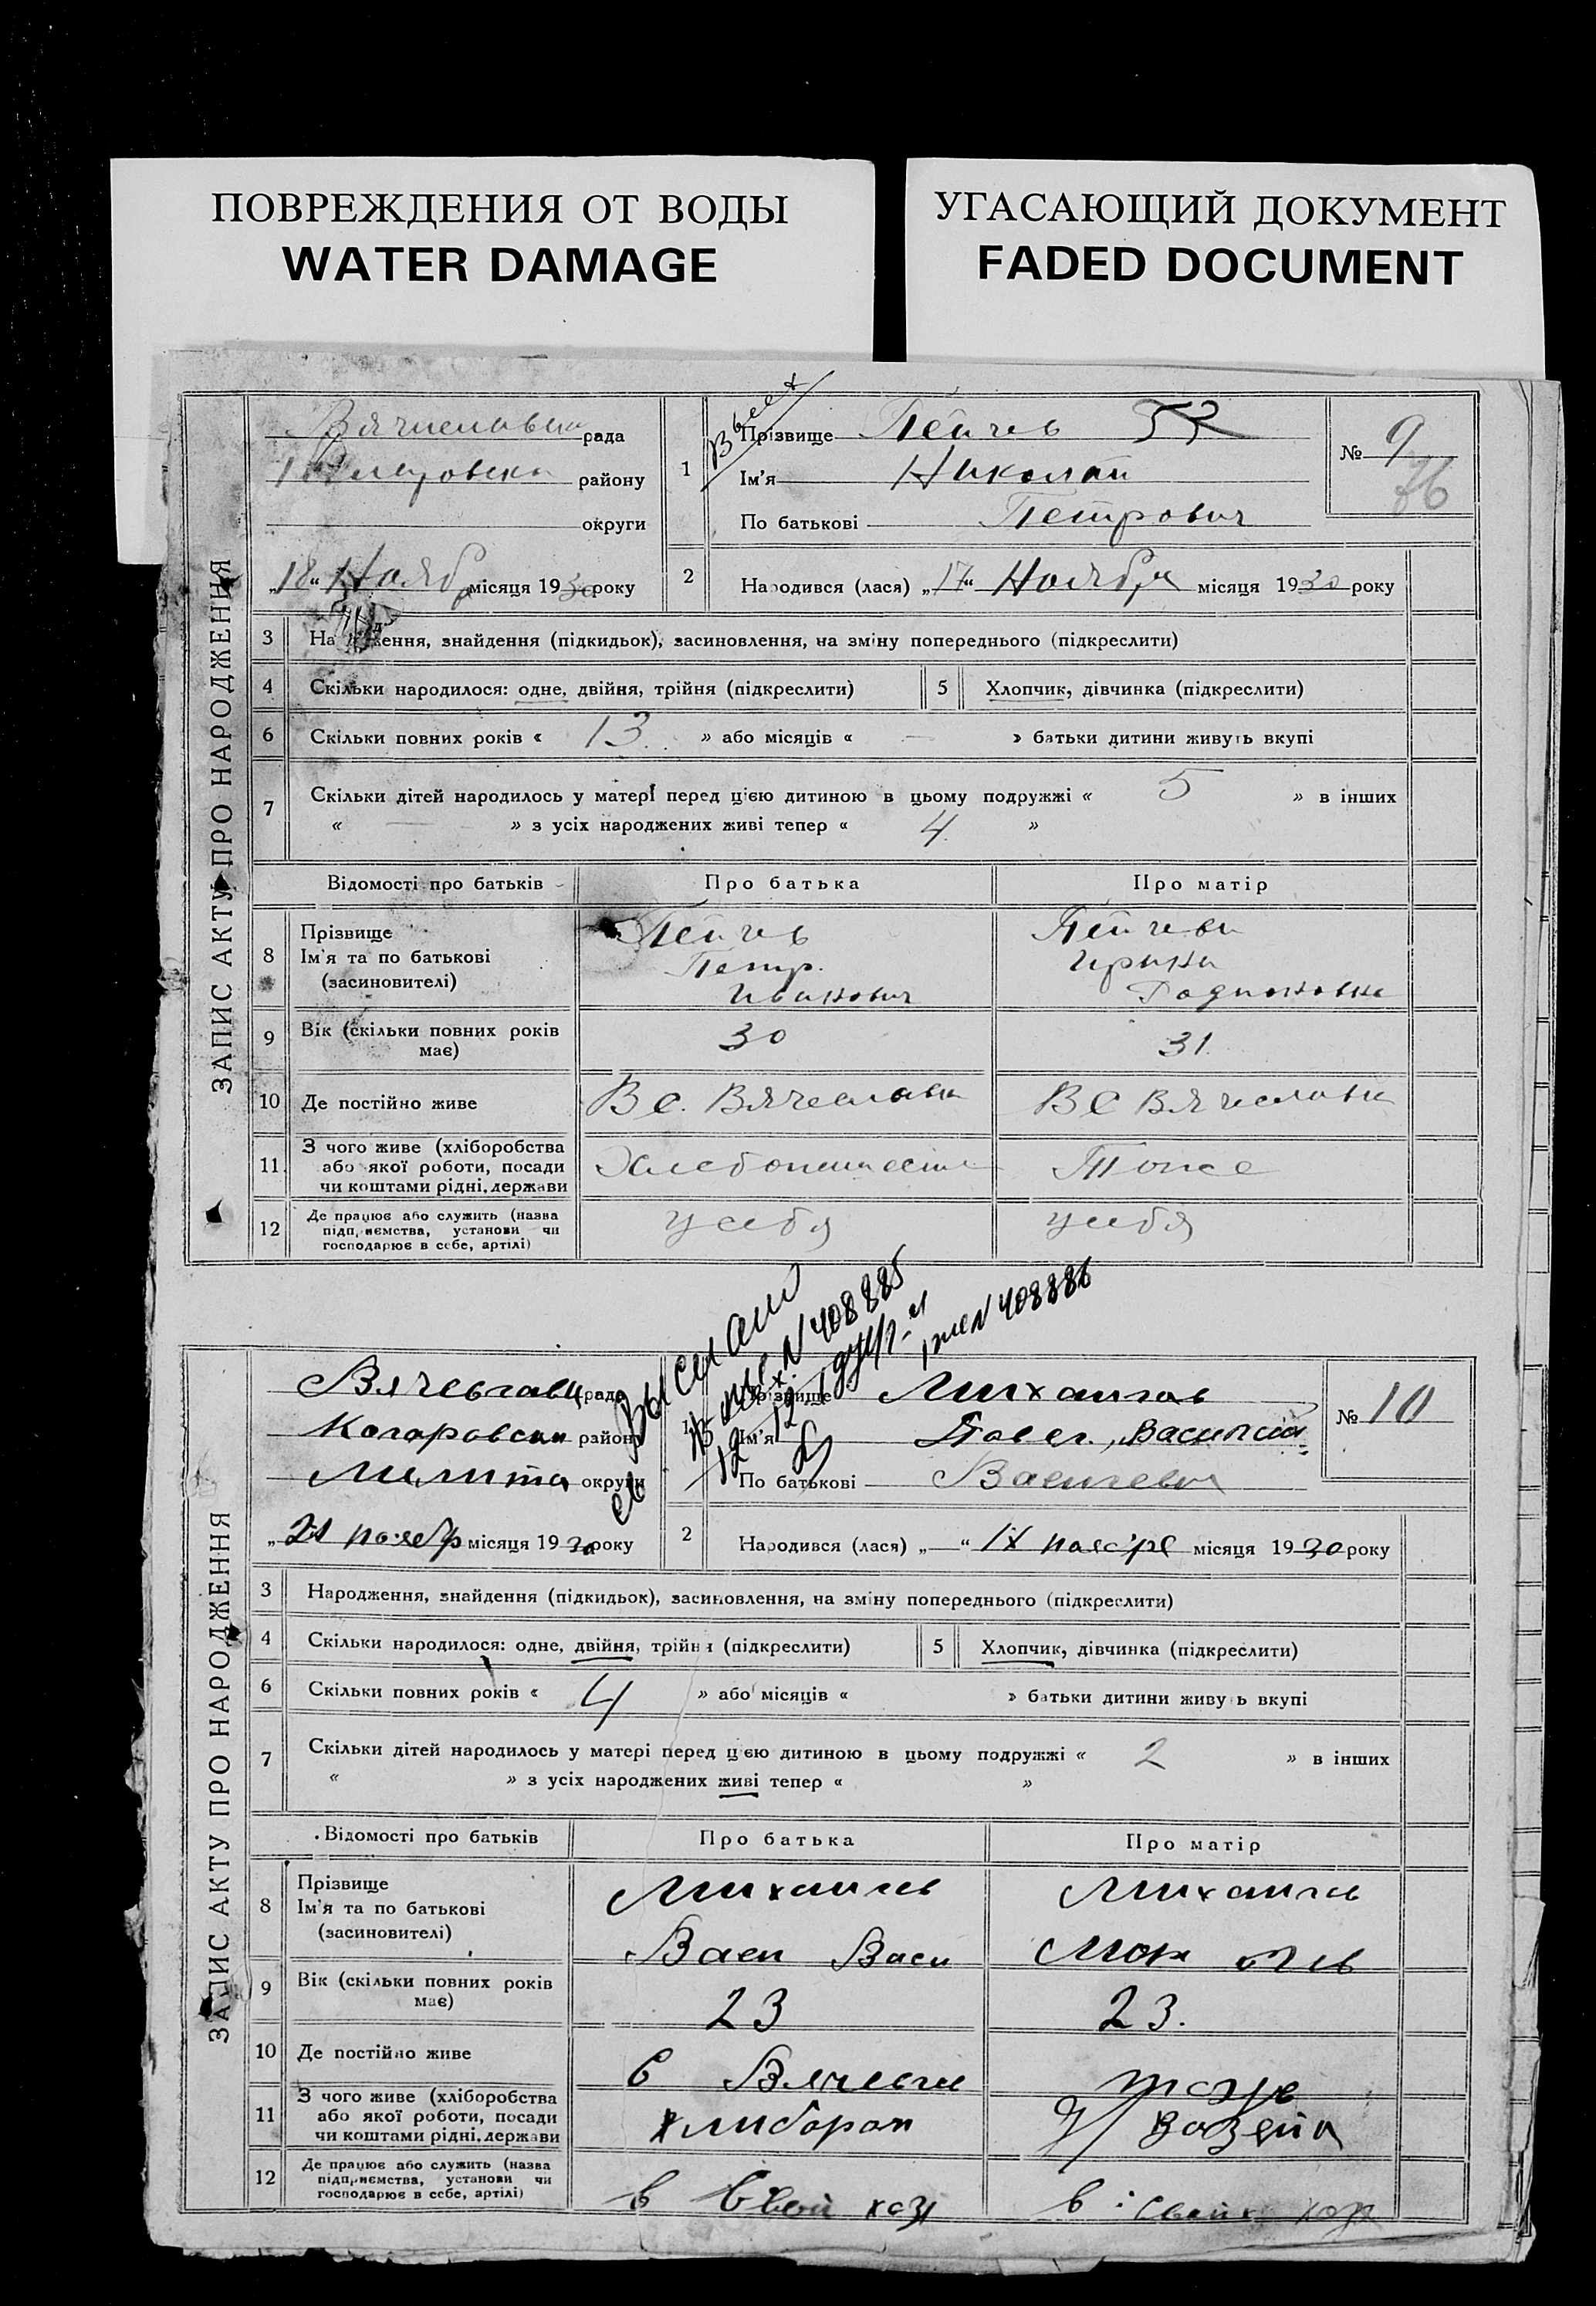 ПОВРЕЖДЕНИЯ ОТ ВОДЫ
WATER DAMAGE
УГАСАЮЩИЙ ДОКУМЕНТ
FADED DOCUMENT
ЗАПИС АКТУ ПРО НАРОДЖЕННЯ
рада
району
округи
„18“ Нояб місяця 1930 року
1 Прізвище Пейчев 52
Ім'я Николай
По батькові Петрович
№ 9
76
2 Народився (лася) „17“ Ноября місяця 1930 року
3 Народження, знайдення (підкидьок), засиновлення, на зміну попереднього (підкреслити)
4 Скільки народилося: одне, двійня, трійня (підкреслити) 5 Хлопчик, дівчинка (підкреслити)
6 Скільки повних років « 13 » або місяців « — » батьки дитини живуть вкупі
7 Скільки дітей народилось у матері перед цією дитиною в цьому подружжі « 5 » в інших
« — » з усіх народжених живі тепер « 4 »
Відомості про батьків Про батька Про матір
8 Прізвище Ім'я та по батькові (засиновителі)
Пейчев Пейчева
Петр. Ирина
Иванович Родионовна
9 Вік (скільки повних років має) 30 31
10 Де постійно живе В с. Вячеславка В с Вячеславка
11 З чого живе (хліборобства або якої роботи, посади чи коштами рідні, держави
Тоже
12 Де працює або служить (назва підприємства, установи чи господарює в себе, артілі)
у себя у себя
Выслано
N 408885
N 408886
ЗАПИС АКТУ ПРО НАРОДЖЕННЯ
рада
району
округи
„21 ноябр місяця 1930 року
1 Прізвище Михайлов
Ім'я Павел, Василий
По батькові Васильев
№ 10
2 Народився (лася) „—“ IX ноября місяця 1930 року
3 Народження, знайдення (підкидьок), засиновлення, на зміну попереднього (підкреслити)
4 Скільки народилося: одне, двійня, трійня (підкреслити) 5 Хлопчик, дівчинка (підкреслити)
6 Скільки повних років « 4 » або місяців « » батьки дитини живуть вкупі
7 Скільки дітей народилось у матері перед цією дитиною в цьому подружжі « 2 » в інших
« » з усіх народжених живі тепер « »
Відомості про батьків Про батька Про матір
8 Прізвище Ім'я та по батькові (засиновителі)
Михайлов Михайлов
Васи Васи
9 Вік (скільки повних років має) 23 23.
10 Де постійно живе
11 З чого живе (хліборобства або якої роботи, посади чи коштами рідні, держави
хлибороп
12 Де працює або служить (назва підприємства, установи чи господарює в себе, артілі)
в свой хозя в свой хозя